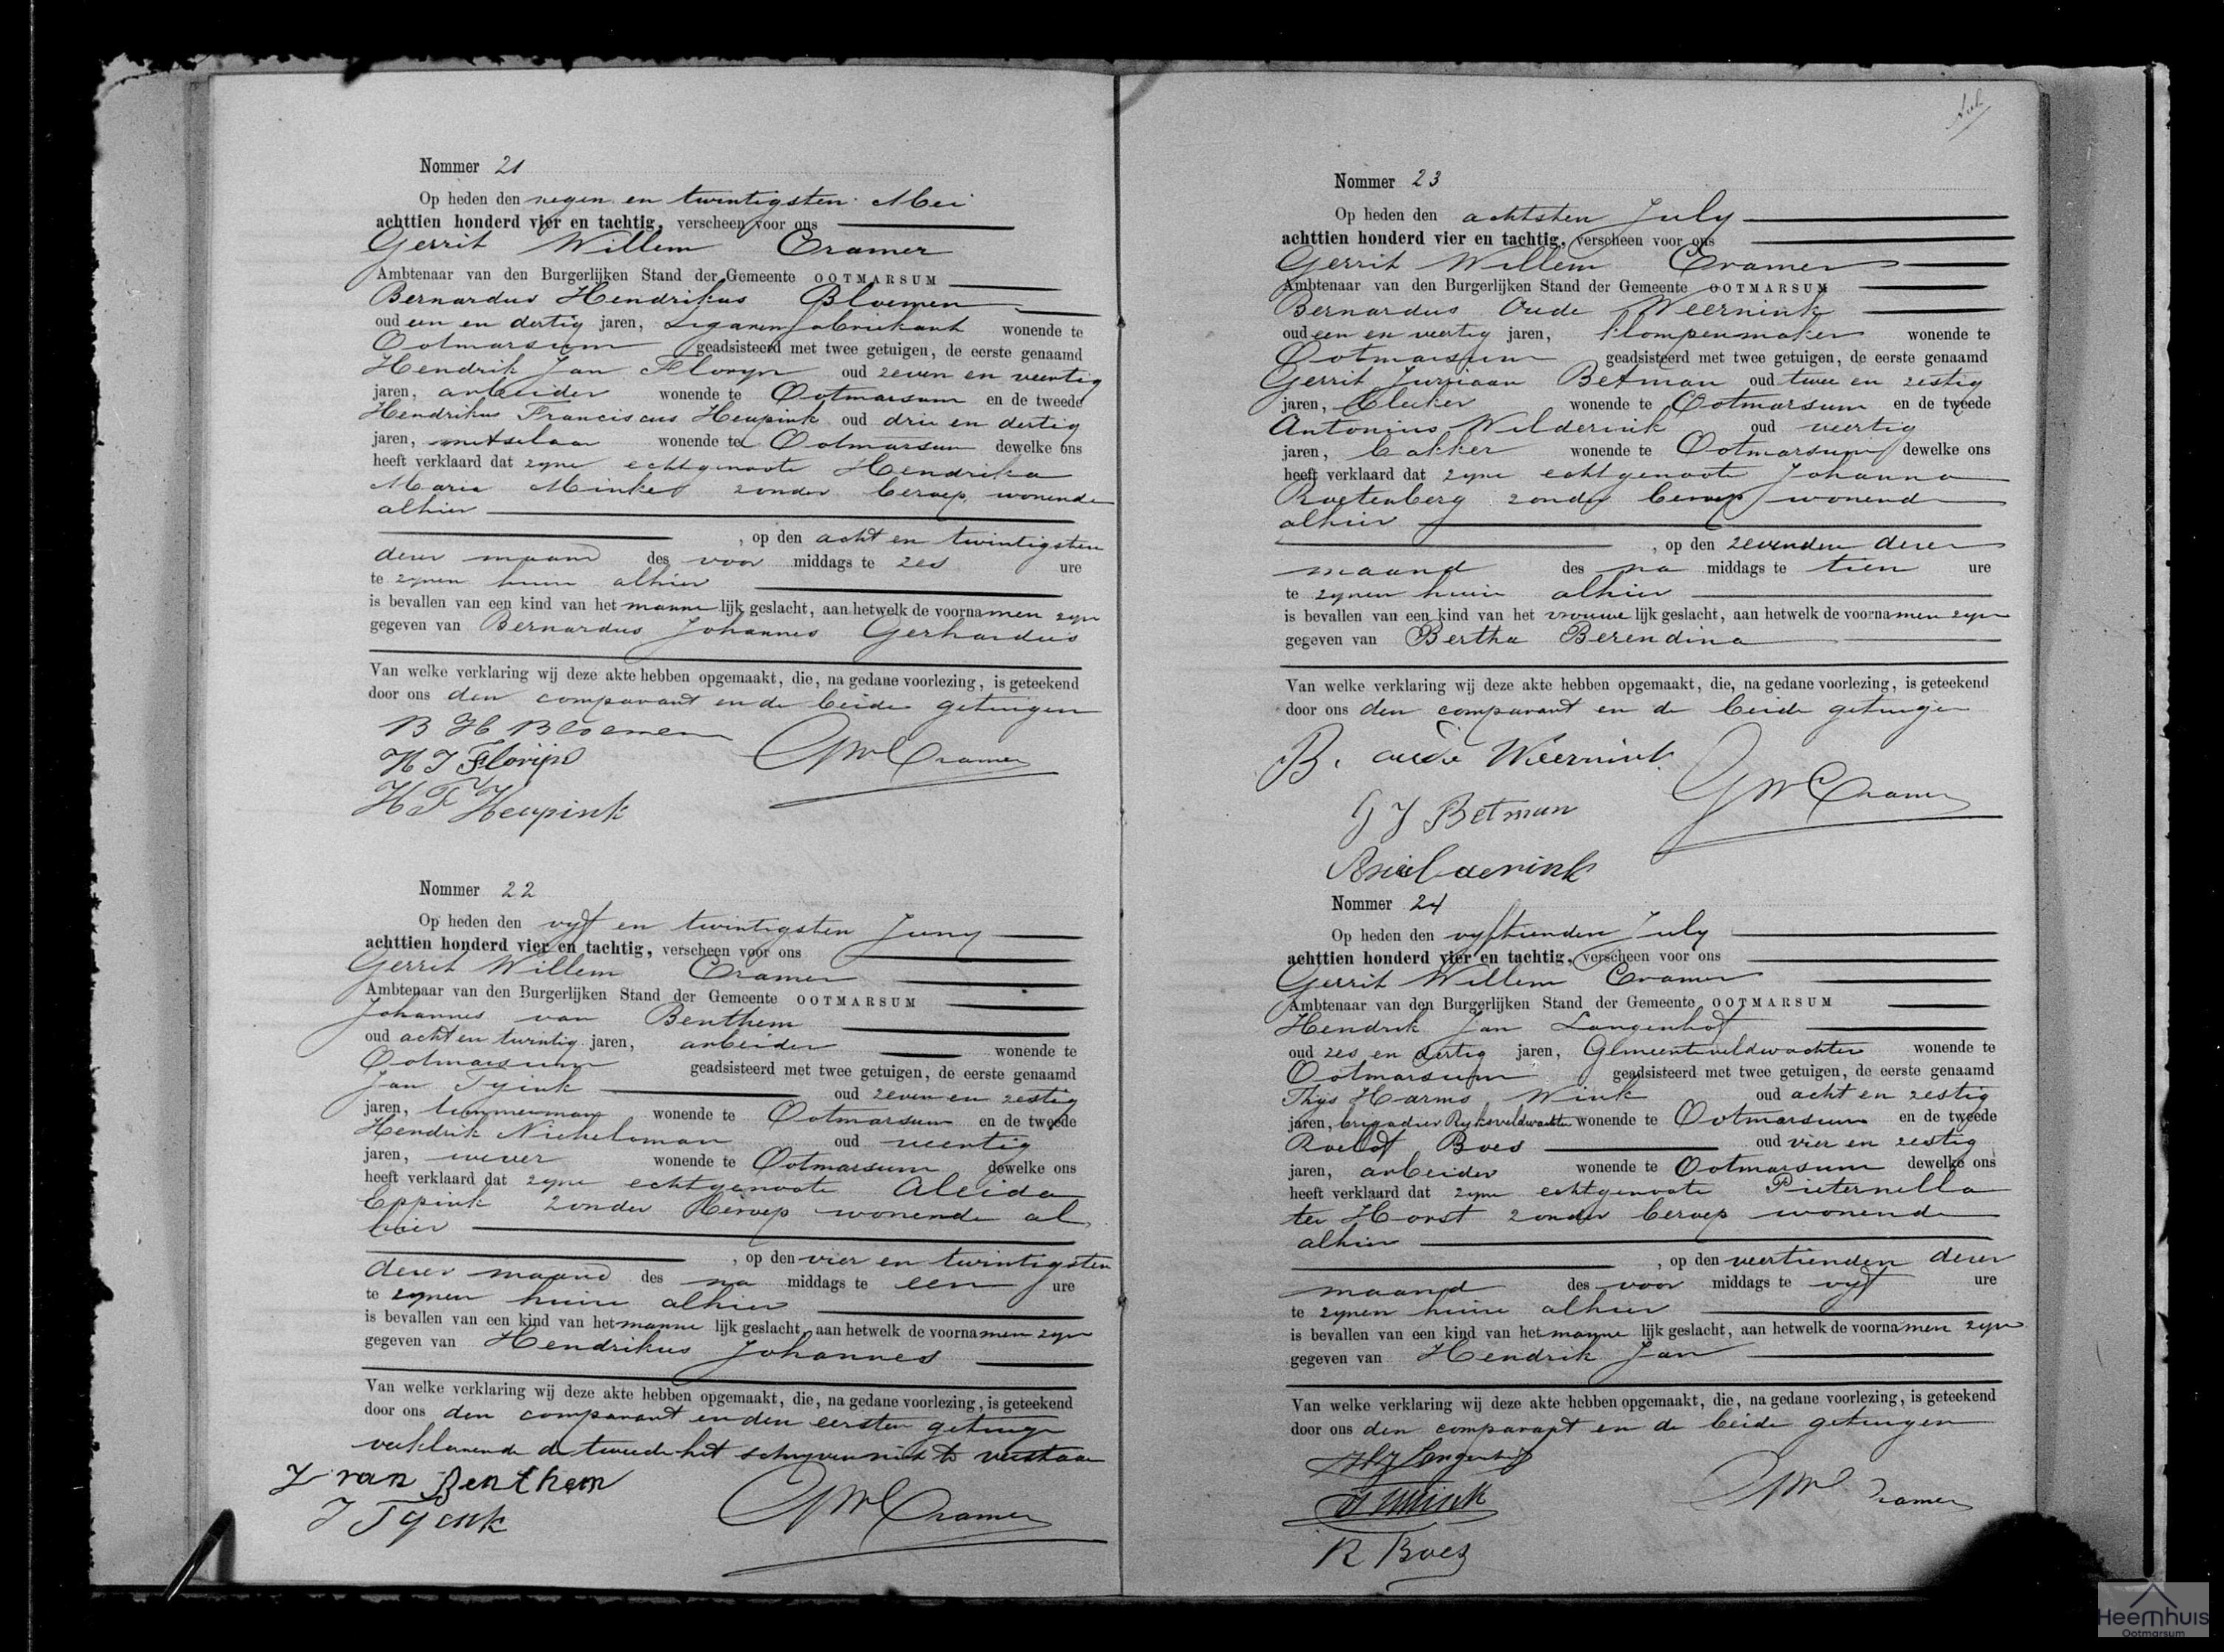 Nommer 21
Op heden den negen en twintigsten Mei
achttien honderd vier en tachtig, verscheen voor ons
Gerrit Willem Cramer
Ambtenaar van den Burgerlijken Stand der Gemeente OOTMARSUM
Bernardus Hendrikus Bloemen
oud een en dertig jaren, Sigarenfabriekant wonende te
Ootmarsum geadsisteerd met twee getuigen, de eerste genaamd
Hendrik Jan Floryn oud zeven en veertig
jaren, arbeider wonende te Ootmarsum en de tweede
Hendrikus Franciscus Heupink oud drie en dertig
jaren, metselaar wonende te Ootmarsum dewelke ons
heeft verklaard dat zyne echtgenoote Hendrika
Maria Minke zonder beroep wonende
alhier
, op den acht en twintigsten
dezer maand des voor middags te zes ure
te zynen huize alhier
is bevallen van een kind van het manne lijk geslacht, aan hetwelk de voornamen zyn
gegeven van Bernardus Johannes Gerhardus
Van welke verklaring wij deze akte hebben opgemaakt, die, na gedane voorlezing, is geteekend
door ons den comparant en de beide getuigen
B H Bloemen
H J Florijn GW Cramer
H F Heupink
Nommer 22
Op heden den vyf en twintigsten Juny
achttien honderd vier en tachtig, verscheen voor ons
Gerrit Willem Cramer
Ambtenaar van den Burgerlijken Stand der Gemeente OOTMARSUM
Johannes van Benthem
oud acht en twintig jaren, arbeider wonende te
Ootmarsum geadsisteerd met twee getuigen, de eerste genaamd
Jan Tyink oud zeven en zestig
jaren, timmerman wonende te Ootmarsum en de tweede
Hendrik Nichelsman oud veertig
jaren, wever wonende te Ootmarsum dewelke ons
heeft verklaard dat zyne echtgenoote Aleida
Eppink zonder beroep wonende al
hier
, op den vier en twintigsten
dezer maand des na middags te een ure
te zynen huize alhier
is bevallen van een kind van het manne lijk geslacht, aan hetwelk de voornamen zyn
gegeven van Hendrikus Johannes
Van welke verklaring wij deze akte hebben opgemaakt, die, na gedane voorlezing, is geteekend
door ons den comparant en den eersten getuige
verklarende de tweede het schryven niet te verstaan
J van Benthem
J Tyink GW Cramer
Nommer 23
Op heden den achtsten July
achttien honderd vier en tachtig, verscheen voor ons
Gerrit Willem Cramer
Ambtenaar van den Burgerlijken Stand der Gemeente OOTMARSUM
Bernardus Oude Weernink
oud een en veertig jaren, klompenmaker wonende te
Ootmarsum geadsisteerd met twee getuigen, de eerste genaamd
Gerrit Jurriaan Betman oud twee en zestig
jaren, wonende te Ootmarsum en de tweede
Antonius Wilderink oud veertig
jaren, bakker wonende te Ootmarsum dewelke ons
heeft verklaard dat zyne echtgenoote Johanna
Roetenberg zonder beroep wonende
alhier
, op den zevenden dezer
maand des na middags te tien ure
te zynen huize alhier
is bevallen van een kind van het vrouwe lijk geslacht, aan hetwelk de voornamen zyn
gegeven van Bertha Berendina
Van welke verklaring wij deze akte hebben opgemaakt, die, na gedane voorlezing, is geteekend
door ons den comparant en de beide getuigen
B. oude Weernink
GW Cramer
G J Betman
Nommer 24
Op heden den vyftienden July
achttien honderd vier en tachtig, verscheen voor ons
Gerrit Willem Cramer
Ambtenaar van den Burgerlijken Stand der Gemeente OOTMARSUM
Hendrik Jan Langenhof
oud zes en dertig jaren, Gemeenteveldwachter wonende te
Ootmarsum geadsisteerd met twee getuigen, de eerste genaamd
Thijs Harms Wink oud acht en zestig
jaren, brigadier Ryksveldwachter wonende te Ootmarsum en de tweede
Roelof Boes oud vier en zestig
jaren, arbeider wonende te Ootmarsum dewelke ons
heeft verklaard dat zyne echtgenoote Pieternella
ter Horst zonder beroep wonende
alhier
, op den veertienden dezer
maand des voor middags te vyf ure
te zynen huize alhier
is bevallen van een kind van het manne lijk geslacht, aan hetwelk de voornamen zyn
gegeven van Hendrik Jan
Van welke verklaring wij deze akte hebben opgemaakt, die, na gedane voorlezing, is geteekend
door ons den comparant en de beide getuigen
HJ Langenhof
GW Cramer
R Boes
Heemhuis
Ootmarsum